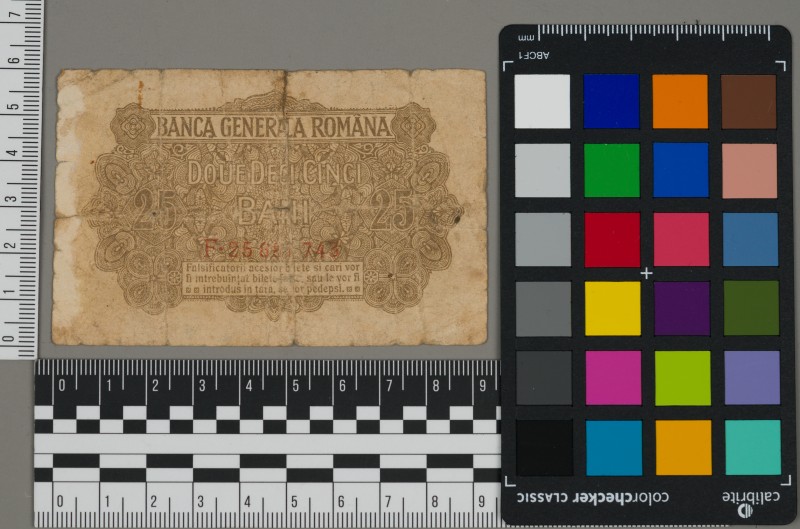 BANCA GENERALA ROMÂNA
DOUEDECI CINCI
25 BANI 25
Falsificatorii acestor bilete si cari vor
fi intrebuintat bilete false, sau le vor fi
introdus in tara, se vor pedepsi.
7
6
5
4
3
2
1
0
0 1 2 3 4 5 6 7 8 9
0 1 2 3 4 5 6 7 8 9
mm
ABCF1
colorchecker CLASSIC
calibrite